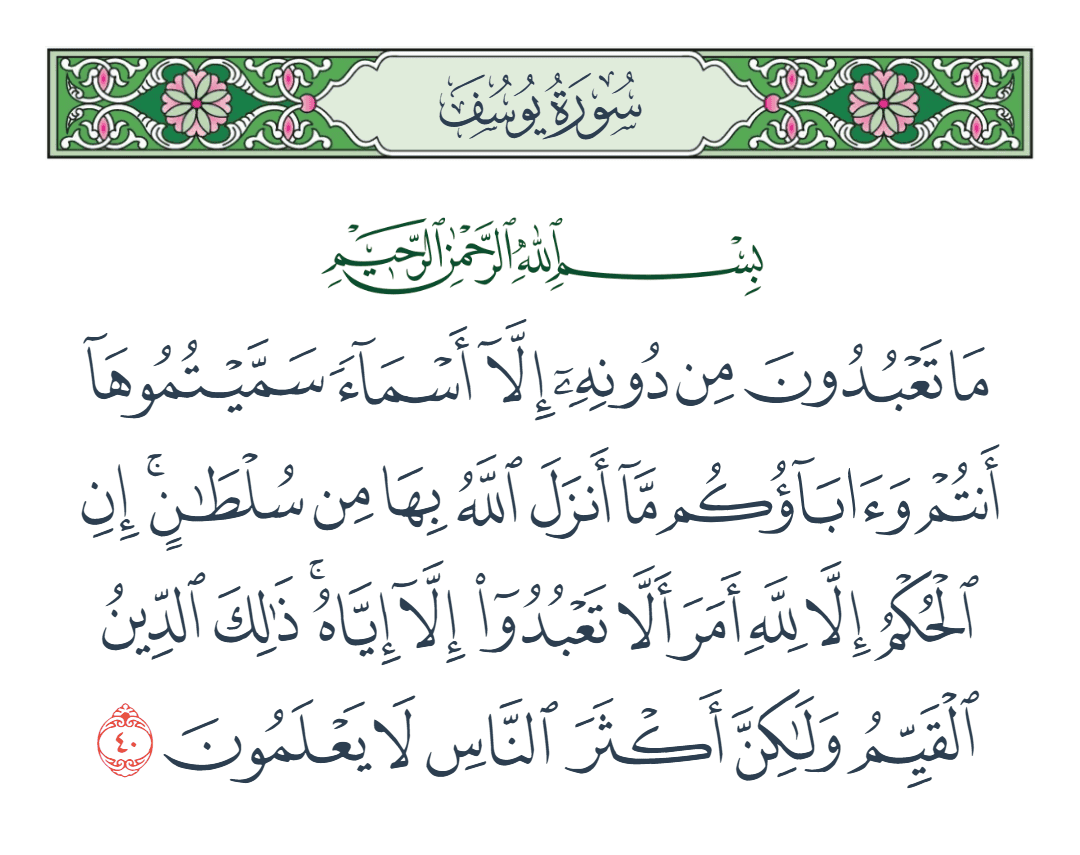 سُورَةُ يُوسُفَ
بِسْمِ ٱللَّهِ ٱلرَّحْمَٰنِ ٱلرَّحِيمِ
مَا تَعْبُدُونَ مِن دُونِهِۦٓ إِلَّآ أَسْمَآءً سَمَّيْتُمُوهَآ
أَنتُمْ وَءَابَآؤُكُم مَّآ أَنزَلَ ٱللَّهُ بِهَا مِن سُلْطَٰنٍ ۚ إِنِ
ٱلْحُكْمُ إِلَّا لِلَّهِ أَمَرَ أَلَّا تَعْبُدُوٓا۟ إِلَّآ إِيَّاهُ ۚ ذَٰلِكَ ٱلدِّينُ
ٱلْقَيِّمُ وَلَٰكِنَّ أَكْثَرَ ٱلنَّاسِ لَا يَعْلَمُونَ ٤٠